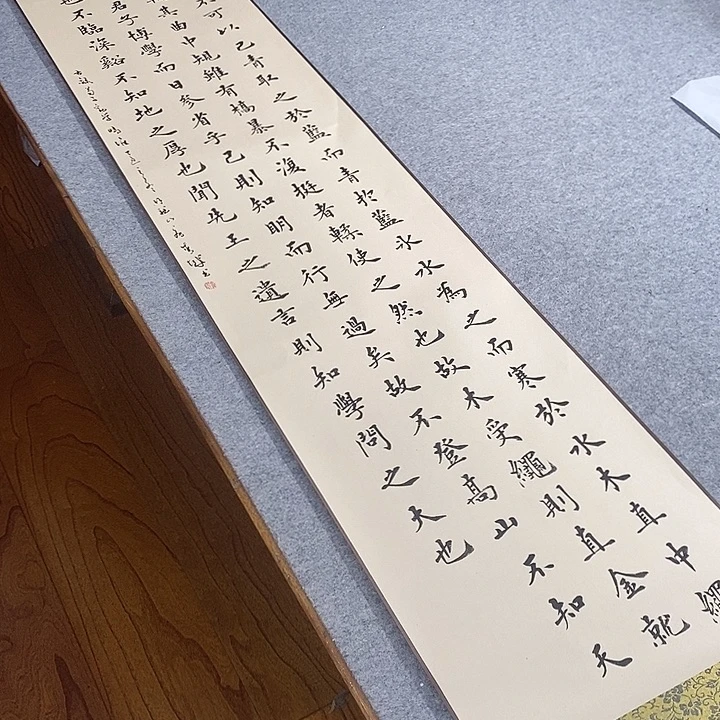 不可以已青取之於藍而青扵藍冰水為之而寒於水木直中繩
其曲中規雖有槁暴不復挺者輮使之然也故木受繩則直金就
君子博學而日參省乎己則知明而行無過矣故不登高山不知天
也不臨深谿不知地之厚也聞先王之遺言則知學問之大也